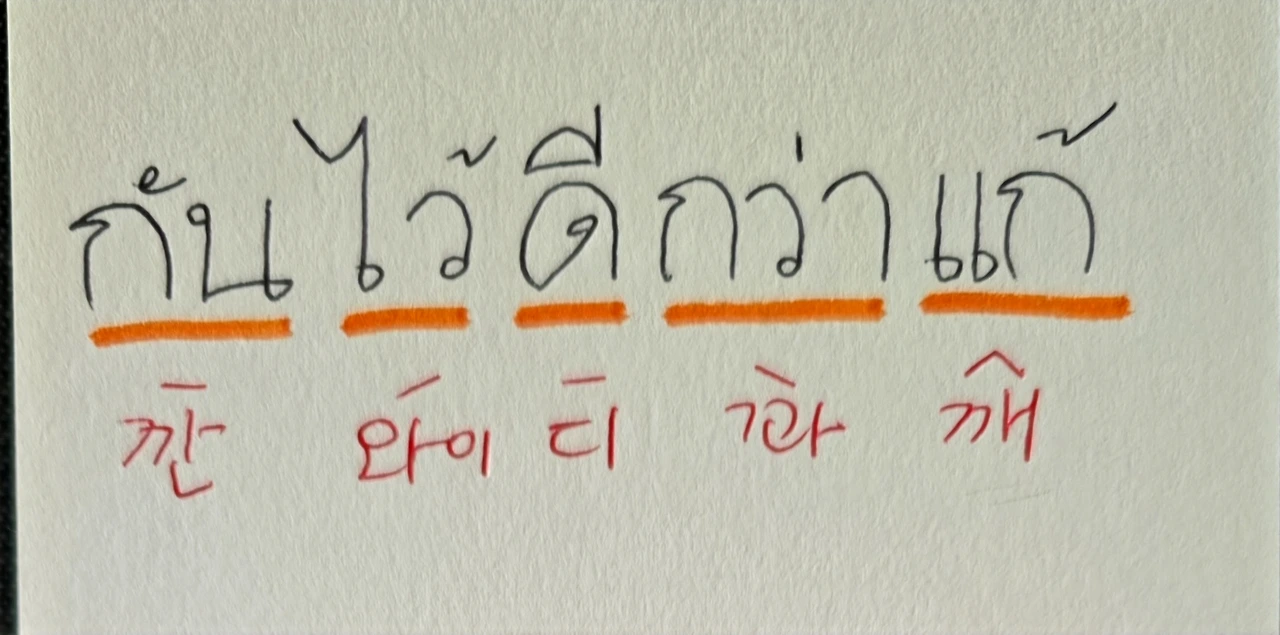 กันไว้ดีกว่าแก้
깐 와이 디 꽈 깨